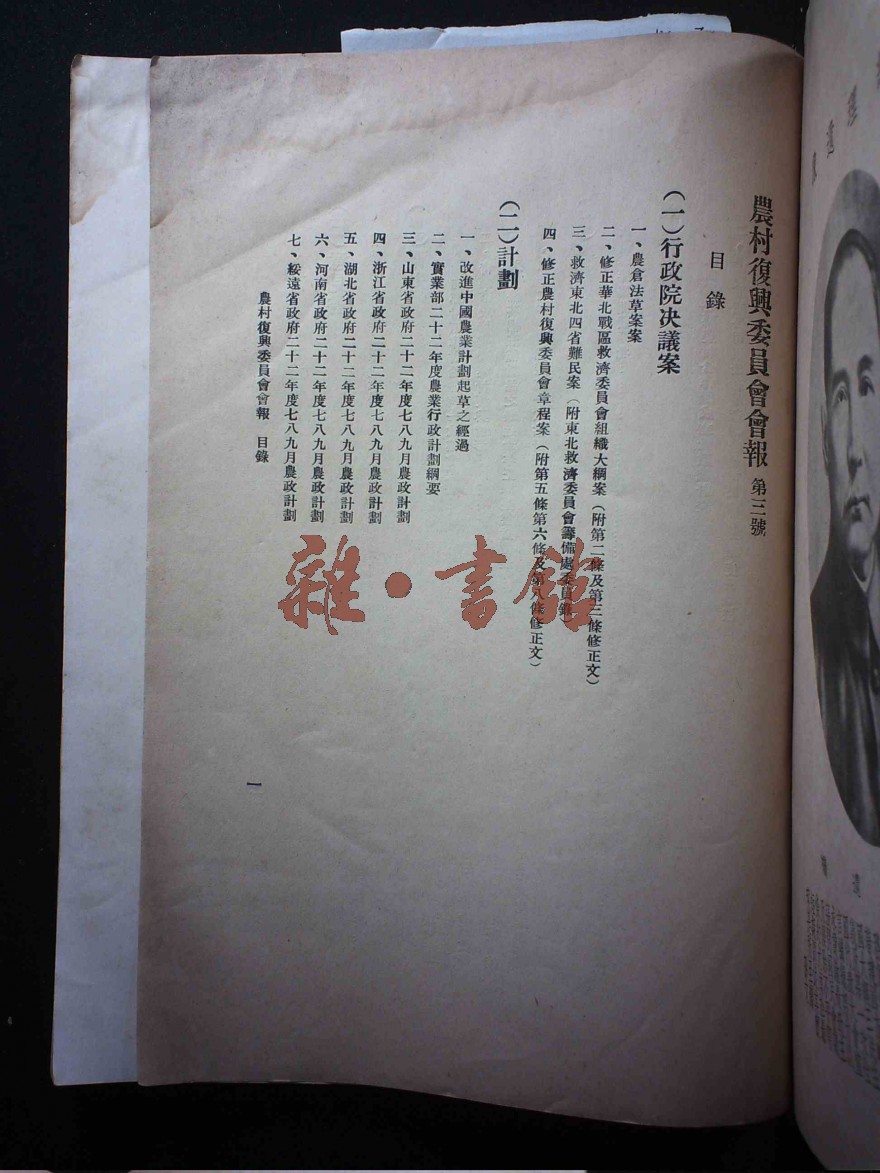 農村復興委員會會報 第三號
目錄
(一)行政院决議案
一、農倉法草案案
二、修正華北戰區救濟委員會組織大綱案(附第二條及第三條修正文)
三、救濟東北四省難民案(附東北救濟委員會籌備處委員錄)
四、修正農村復興委員會章程案(附第五條第六條及第八條修正文)
(二)計劃
一、改進中國農業計劃起草之經過
二、實業部二十二年度農業行政計劃綱要
三、山東省政府二十二年度七八九月農政計劃
四、浙江省政府二十二年度七八九月農政計劃
五、湖北省政府二十二年度七八九月農政計劃
六、河南省政府二十二年度七八九月農政計劃
七、綏遠省政府二十二年度七八九月農政計劃
農村復興委員會會報 目錄
一
雜·書館